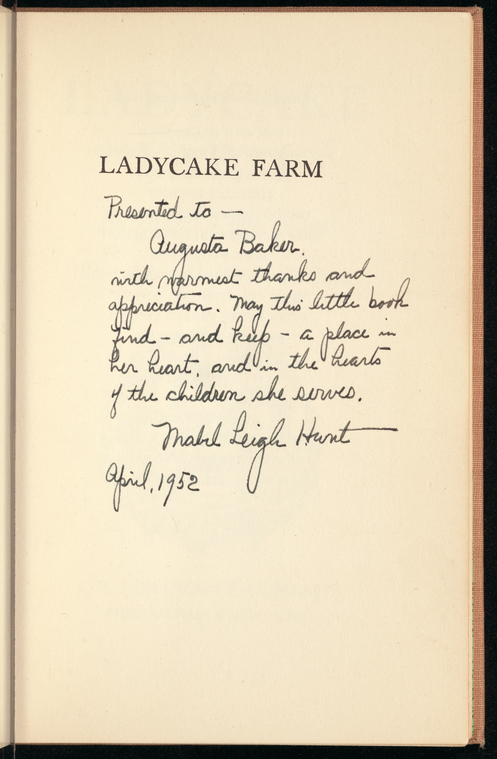 LADYCAKE FARM
Presented to —
Augusta Baker,
with warmest thanks and
appreciation. May this little book
find - and keep - a place in
her heart, and in the hearts
of the children she serves.
Mabel Leigh Hunt
April, 1952